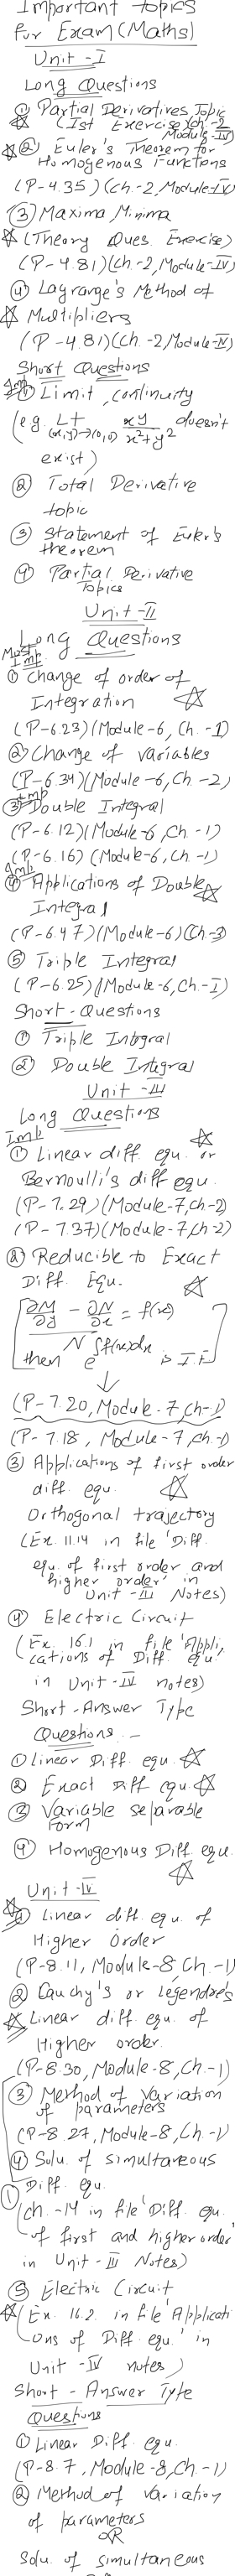 Important topics
for Exam (Maths)
Unit - I
Long Questions
① Partial Derivatives Topic
(Ist Exercise) (Ch-2
Module-IV)
② Euler's Theorem for
Homogenous Functions
(P-4.35) (Ch.-2, Module-IV)
③ Maxima, Minima
(Theory Ques. Exercise)
(P-4.81) (Ch.-2, Module-IV)
④ Lagrange's Method of
Multipliers
(P-4.81) (Ch.-2, Module-IV)
Short Questions
Imp
① Limit, continuity
(e.g. Lt (x,y)→(0,0) xy/x²+y² doesn't
exist)
② Total Derivative
topic
③ Statement of Euler's
theorem
④ Partial Derivative
Topics
Unit - II
Long Questions
Most Imp
① Change of order of
Integration
(P-6.23) (Module-6, Ch.-1)
② Change of variables
(P-6.34) (Module-6, Ch.-2)
Imp
③ Double Integral
(P-6.12) (Module-6, Ch.-1)
(P-6.16) (Module-6, Ch.-1)
Imp
④ Applications of Double
Integral
(P-6.47) (Module-6) (Ch-3)
⑤ Triple Integral
(P-6.25) (Module-6, Ch.-I)
Short - Questions
① Triple Integral
② Double Integral
Unit - III
Long Questions
Imp
① Linear diff. equ. or
Bernoulli's diff equ.
(P-7.29) (Module-7, Ch-2)
(P-7.37) (Module-7, Ch-2)
② Reducible to Exact
Diff. Equ.
[∂M/∂y - ∂N/∂x = f(x)
N
then e^∫f(x)dx is I.F.]
↓
(P-7.20, Module-7, Ch-1)
(P-7.18, Module-7, Ch-1)
③ Applications of first order
diff. equ.
Orthogonal trajectory
(Ex. 11.14 in file 'Diff.
equ. of first order and
higher order' in
Unit - III Notes)
④ Electric Circuit
(Ex. 16.1 in file 'Appli,
cations of Diff. equ.'
in Unit - IV notes)
Short - Answer Type
Questions :-
① Linear Diff. equ.
② Exact Diff equ.
③ Variable Separable
Form
④ Homogenous Diff. equ.
Unit - IV
① Linear diff. equ. of
Higher Order
(P-8.11, Module-8, Ch.-1)
② Cauchy's or Legendre's
Linear diff. equ. of
Higher order.
(P-8.30, Module-8, Ch.-1)
③ Method of Variation
of parameters
(P-8.27, Module-8, Ch.-1)
④ Solu. of simultaneous
Diff. equ.
(Ch.-14 in file 'Diff. equ.
of first and higher order'
in Unit - III Notes)
⑤ Electric Circuit
(Ex. 16.2 in file 'Applicati
ons of Diff. equ.' in
Unit - IV notes)
Short - Answer Type
Questions
① Linear Diff. equ.
(P-8.7, Module-8, Ch.-1)
② Method of variation
of parameters
OR
Solu. of simultaneous